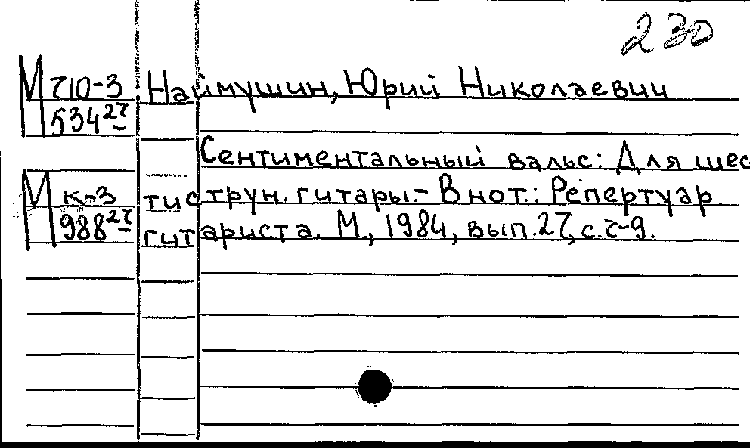 230
М 710-3 Наймушин, Юрий Николаевич
534 27
Сентиментальный вальс: Для шес
М К-3 тиструн. гитары.- В нот.: Репертуар
988 27 гитариста. М., 1984, вып. 27, с. 7-9.